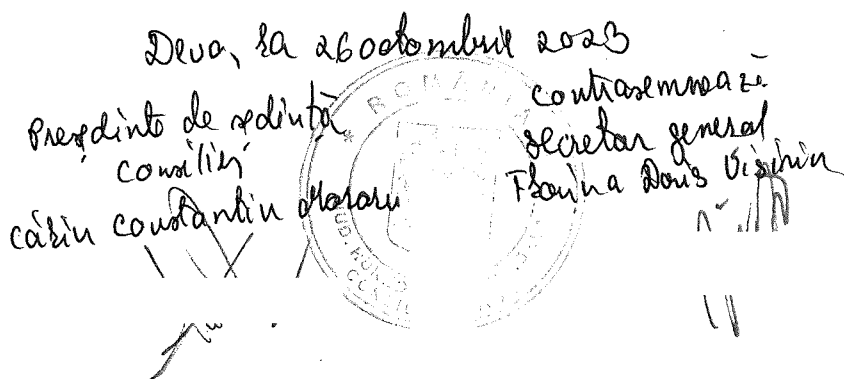 Deva, la 26 octombrie 2023
Președinte de ședință
consilier
Călin Constantin Moraru
contrasemnează
secretar general
Florina Doris Visirin
* ROMÂNIA
JUD. HUNEDOARA